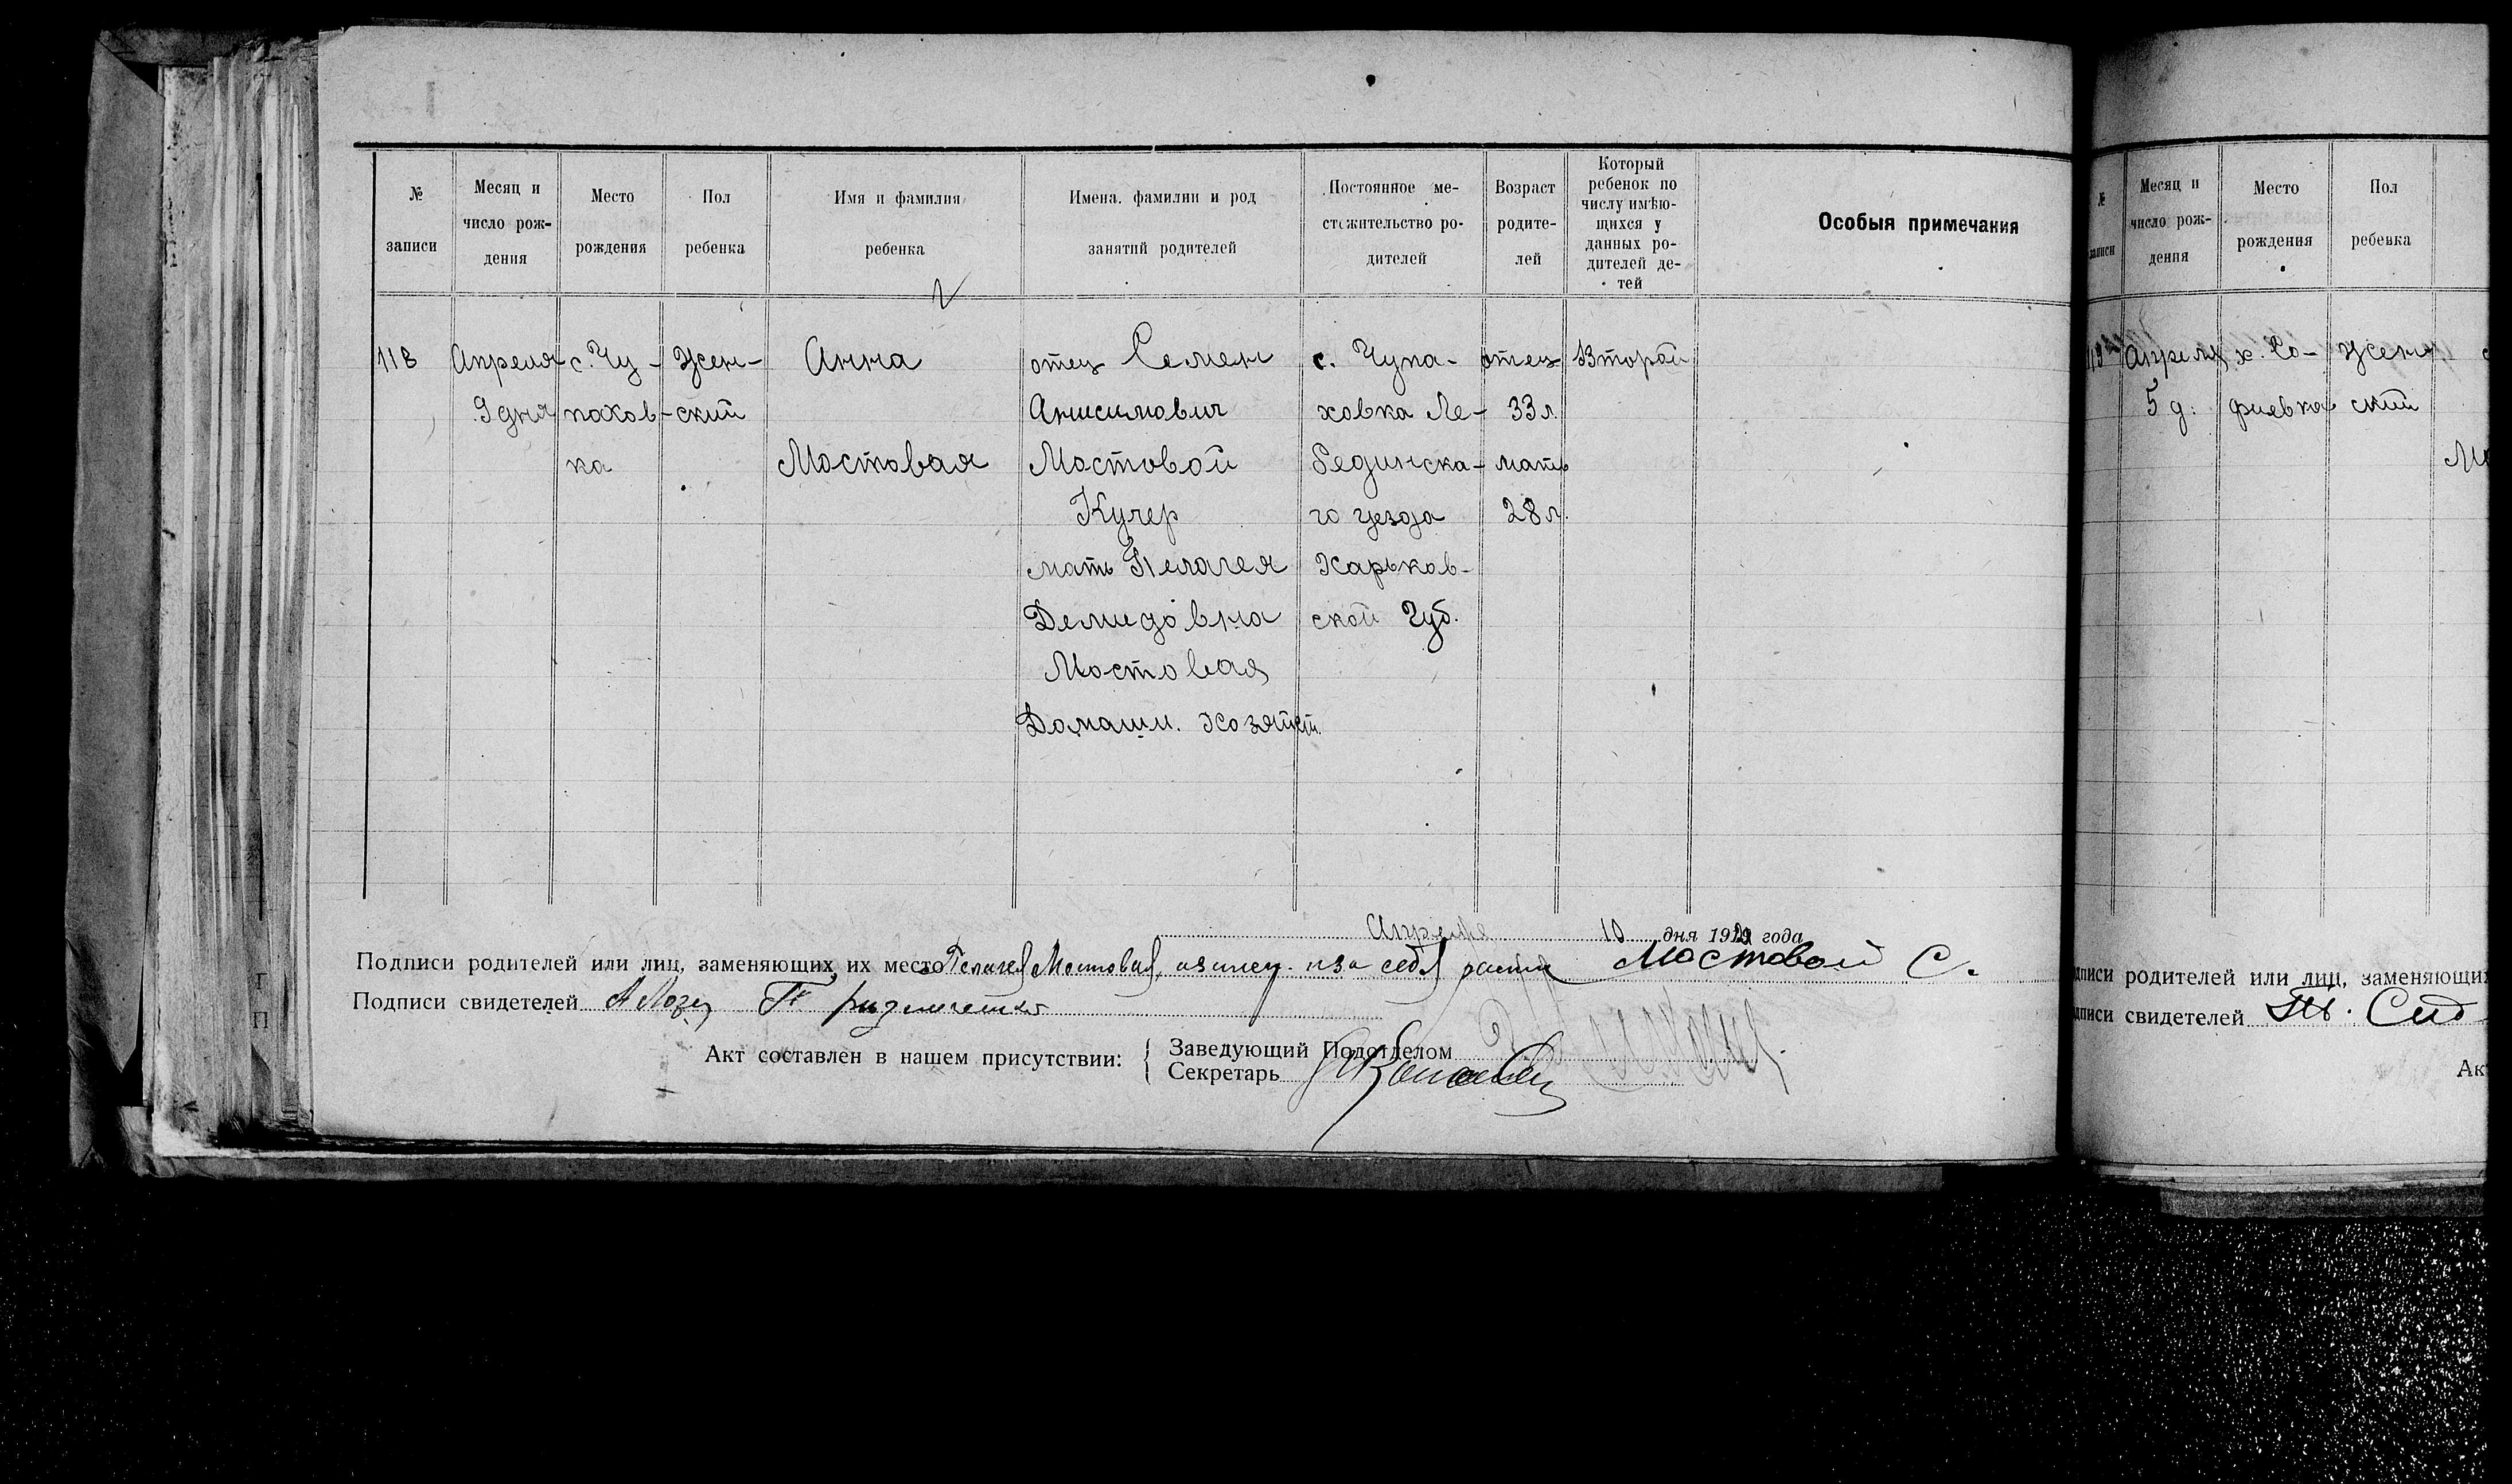 № записи
Месяц и число рождения
Место рождения
Пол ребенка
Имя и фамилия ребенка
Имена, фамилии и род занятий родителей
Постоянное местожительство родителей
Возраст родителей
Который ребенок по числу имѣющихся у данных родителей детей
Особыя примечания
118
Апреля
9 дня
с. Чу-
пахов-
ка
Жен-
ский
Анна
Мостовая
отец Семен
Анисимович
Мостовой
Кучер
мать Пелагея
Демидовна
Мостовая
Домашн. хозяйст.
с. Чупа-
ховка Ле-
бединска-
го уезда
Харьков-
ской Губ.
отец
33 л.
мать
28 л.
Второй
Апреля 10 дня 19 года
Подписи родителей или лиц, заменяющих их место Пелагея Мостовая, а за неч. и за себя распис Мостовой С.
Подписи свидетелей
Акт составлен в нашем присутствии:
Заведующий Подотделом
Секретарь
№ записи
Месяц и число рождения
Место рождения
Пол ребенка
119
Апреля
5 д.
х. Со-
фиевка
Жен
ский
дписи родителей или лиц, заменяющих
дписи свидетелей
Ак